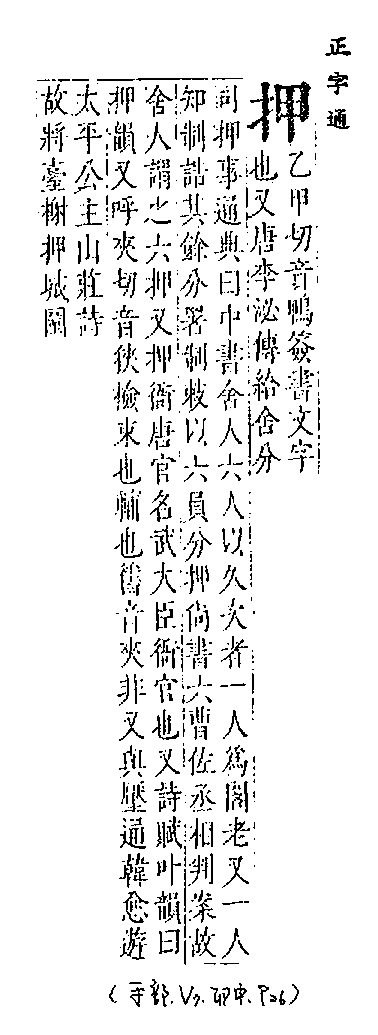 正字通
押
乙甲切音鴨簽書文字
也又唐李泌傳給舍分
司押事通典曰中書舍人六人以久次者一人爲閣老又一人
知制誥其餘分署制敕以六員分押尚書六曹佐丞相判案故
舍人謂之六押又押衙唐官名武大臣衙官也又詩賦叶韻曰
押韻又呼夾切音狹檢束也輔也舊音夾非又與壓通韓愈遊
太平公主山莊詩
故將臺榭押城闉
(手部.V7.卯中.P26)